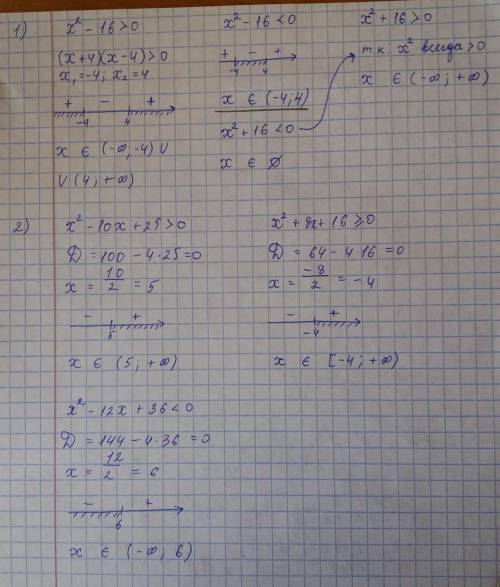 1) x² - 16 > 0
(x+4)(x-4) > 0
x₁ = -4; x₂ = 4
+ - +
-4 4
x ∈ (-∞; -4) ∪
∪ (4; +∞)
x² - 16 < 0
+ - +
-4 4
x ∈ (-4; 4)
x² + 16 < 0
x ∈ ∅
x² + 16 > 0
т к x² всегда > 0
x ∈ (-∞; +∞)
2) x² - 10x + 25 > 0
D = 100 - 4·25 = 0
x = 10/2 = 5
- +
5
x ∈ (5; +∞)
x² + 8x + 16 ≥ 0
D = 64 - 4·16 = 0
x = -8/2 = -4
- +
-4
x ∈ [-4; +∞)
x² - 12x + 36 < 0
D = 144 - 4·36 = 0
x = 12/2 = 6
- +
6
x ∈ (-∞; 6)